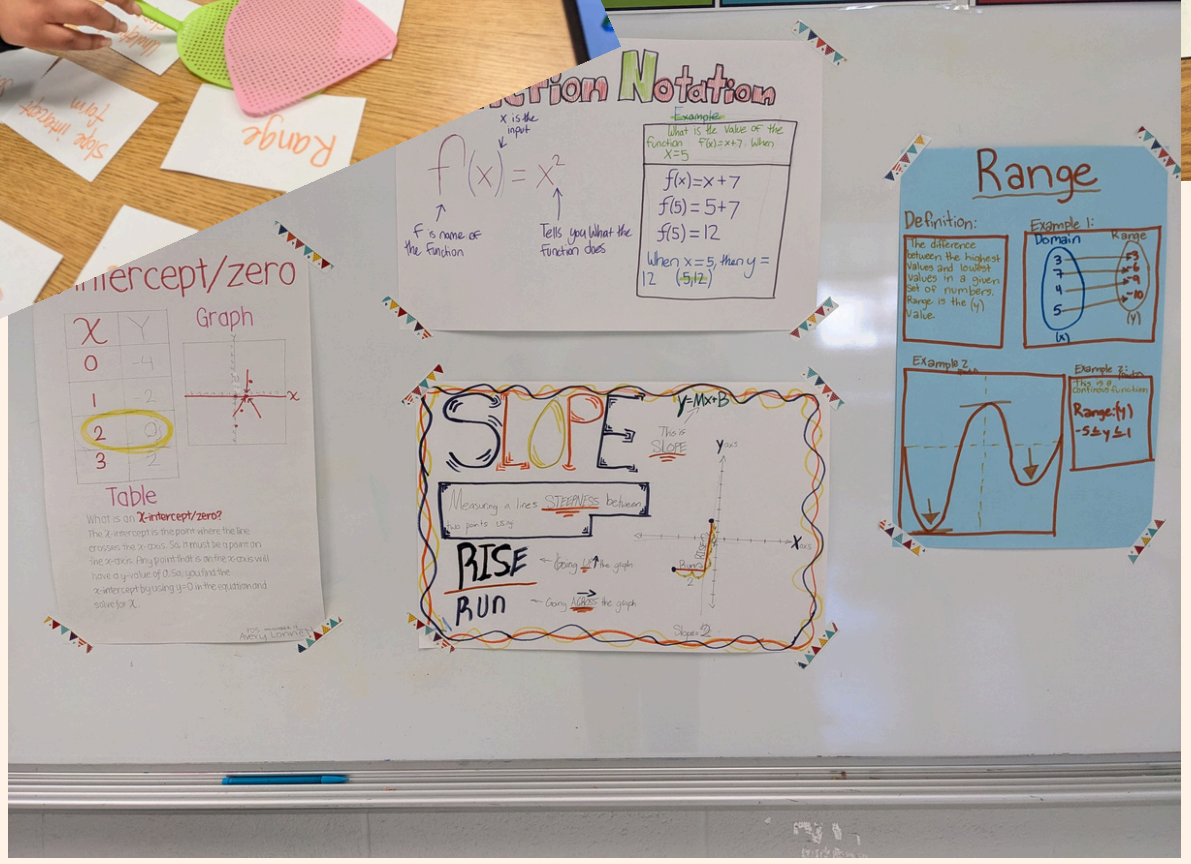 Slope intercept
form
Range
Notation
x is the
input
f(x) = x²
F is name of
the function
Tells you What the
function does
Example
What is the value of the
function f(x)=x+7. When
x=5
f(x)=x+7
f(5)=5+7
f(5)=12
When x=5, then y =
12 (5,12)
intercept/zero
X Y
0 -4
1 -2
2 0
3 2
Graph
x
Table
What is an X-intercept/zero?
The x-intercept is the point where the line
crosses the x-axis. So, it must be a point on
the x-axis. Any point that is on the x-axis will
have a y-value of 0. So, you find the
x-intercept by using y=0 in the equation and
solve for X.
SLOPE
y=Mx+B
This is
SLOPE
Measuring a lines STEEPNESS between
two points using
RISE
Going UP the graph
RUN
Going ACROSS the graph
Y axis
X axis
Run
2
Slope=2
Range
Definition:
The difference
between the highest
values and lowest
values in a given
set of numbers.
Range is the (y)
Value.
Example 1:
Domain Range
3
7
4
5
-3
-6
-9
-10
(x)
(y)
Example 2
This is a
continous function
Range:(y)
-5≤y≤1